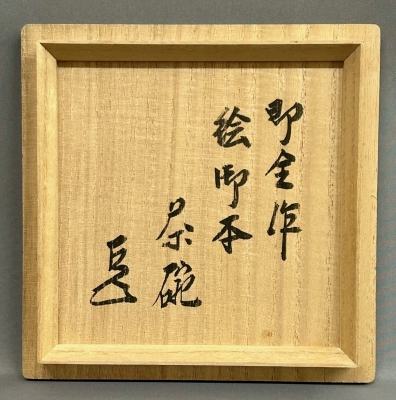 即全作
絵御本
茶碗